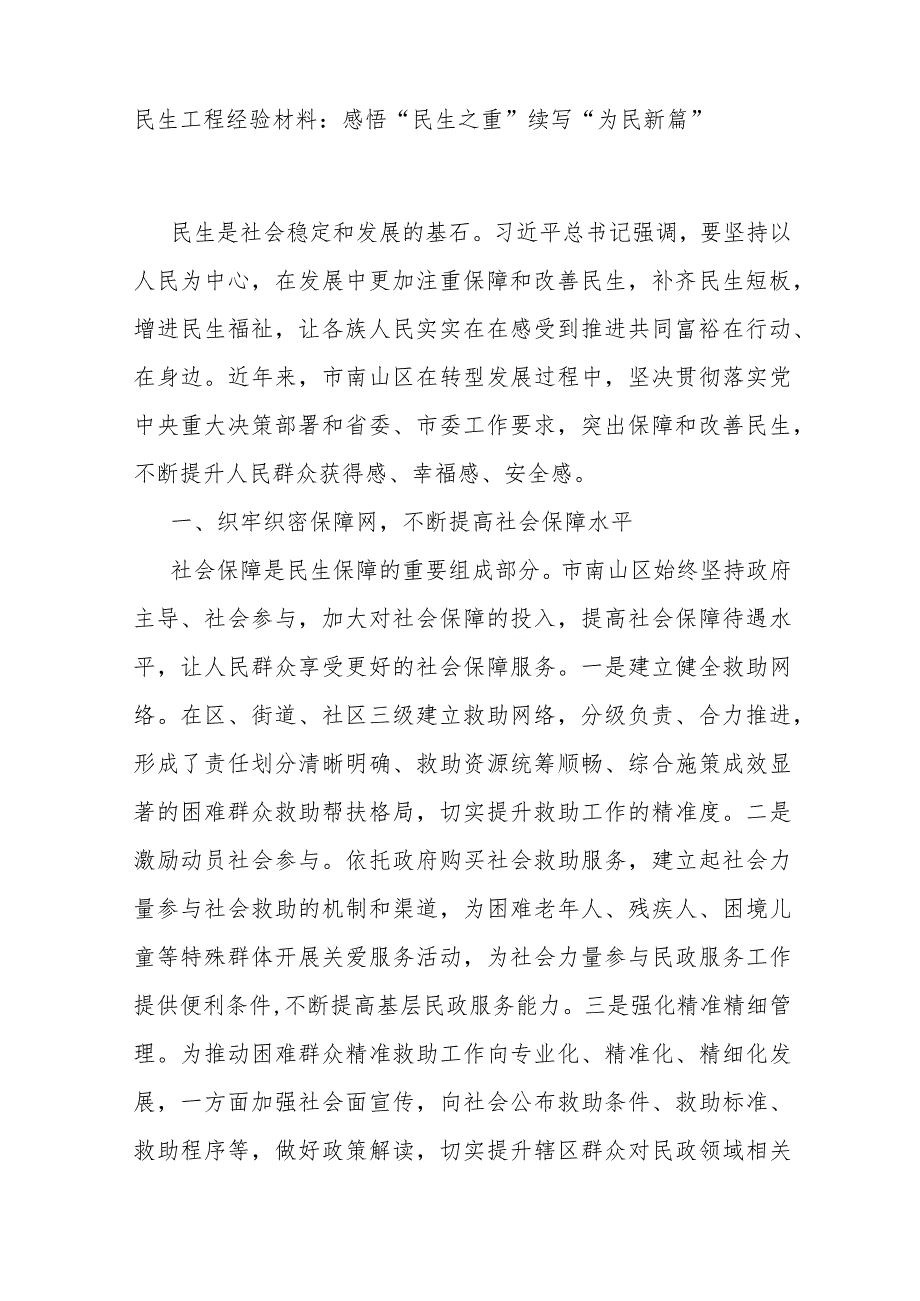 民生工程经验材料：感悟“民生之重”续写“为民新篇”
民生是社会稳定和发展的基石。习近平总书记强调，要坚持以
人民为中心，在发展中更加注重保障和改善民生，补齐民生短板，
增进民生福祉，让各族人民实实在在感受到推进共同富裕在行动、
在身边。近年来，市南山区在转型发展过程中，坚决贯彻落实党
中央重大决策部署和省委、市委工作要求，突出保障和改善民生，
不断提升人民群众获得感、幸福感、安全感。
一、织牢织密保障网，不断提高社会保障水平
社会保障是民生保障的重要组成部分。市南山区始终坚持政府
主导、社会参与，加大对社会保障的投入，提高社会保障待遇水
平，让人民群众享受更好的社会保障服务。一是建立健全救助网
络。在区、街道、社区三级建立救助网络，分级负责、合力推进，
形成了责任划分清晰明确、救助资源统筹顺畅、综合施策成效显
著的困难群众救助帮扶格局，切实提升救助工作的精准度。二是
激励动员社会参与。依托政府购买社会救助服务，建立起社会力
量参与社会救助的机制和渠道，为困难老年人、残疾人、困境儿
童等特殊群体开展关爱服务活动，为社会力量参与民政服务工作
提供便利条件,不断提高基层民政服务能力。三是强化精准精细管
理。为推动困难群众精准救助工作向专业化、精准化、精细化发
展，一方面加强社会面宣传，向社会公布救助条件、救助标准、
救助程序等，做好政策解读，切实提升辖区群众对民政领域相关